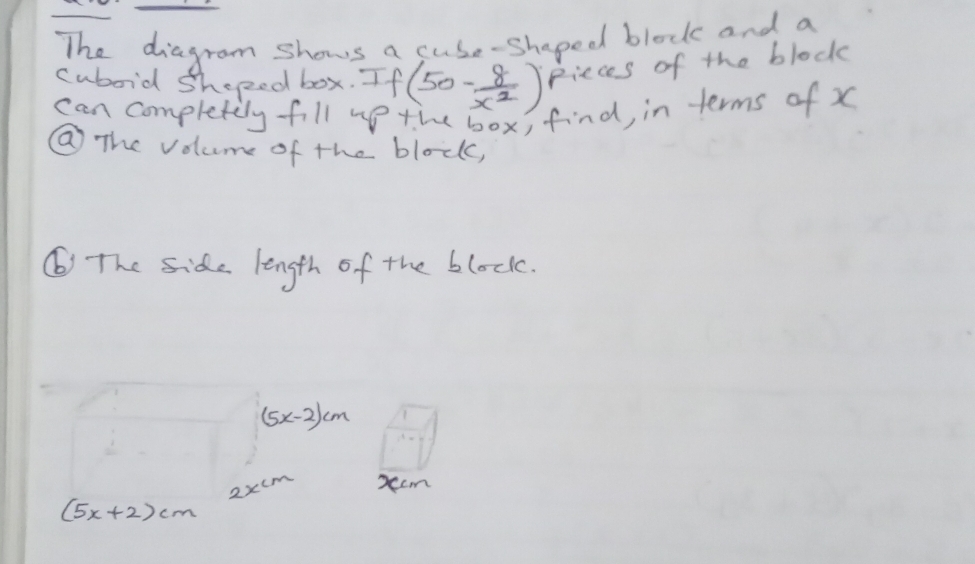 The diagram shows a cube-shaped block and a
cuboid shaped box. If (50 - 8/x²) pieces of the block
can completely fill up the box, find, in terms of x
(a) The volume of the block,
(b) The side length of the block.
(5x-2)cm
2xcm
xcm
(5x+2)cm